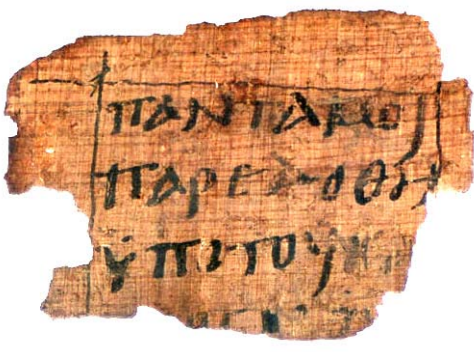 ΠΑΝΤΑΜΟΙ
ΠΑΡΕΔΟΘΗ
ΫΠΟΤΟΥ